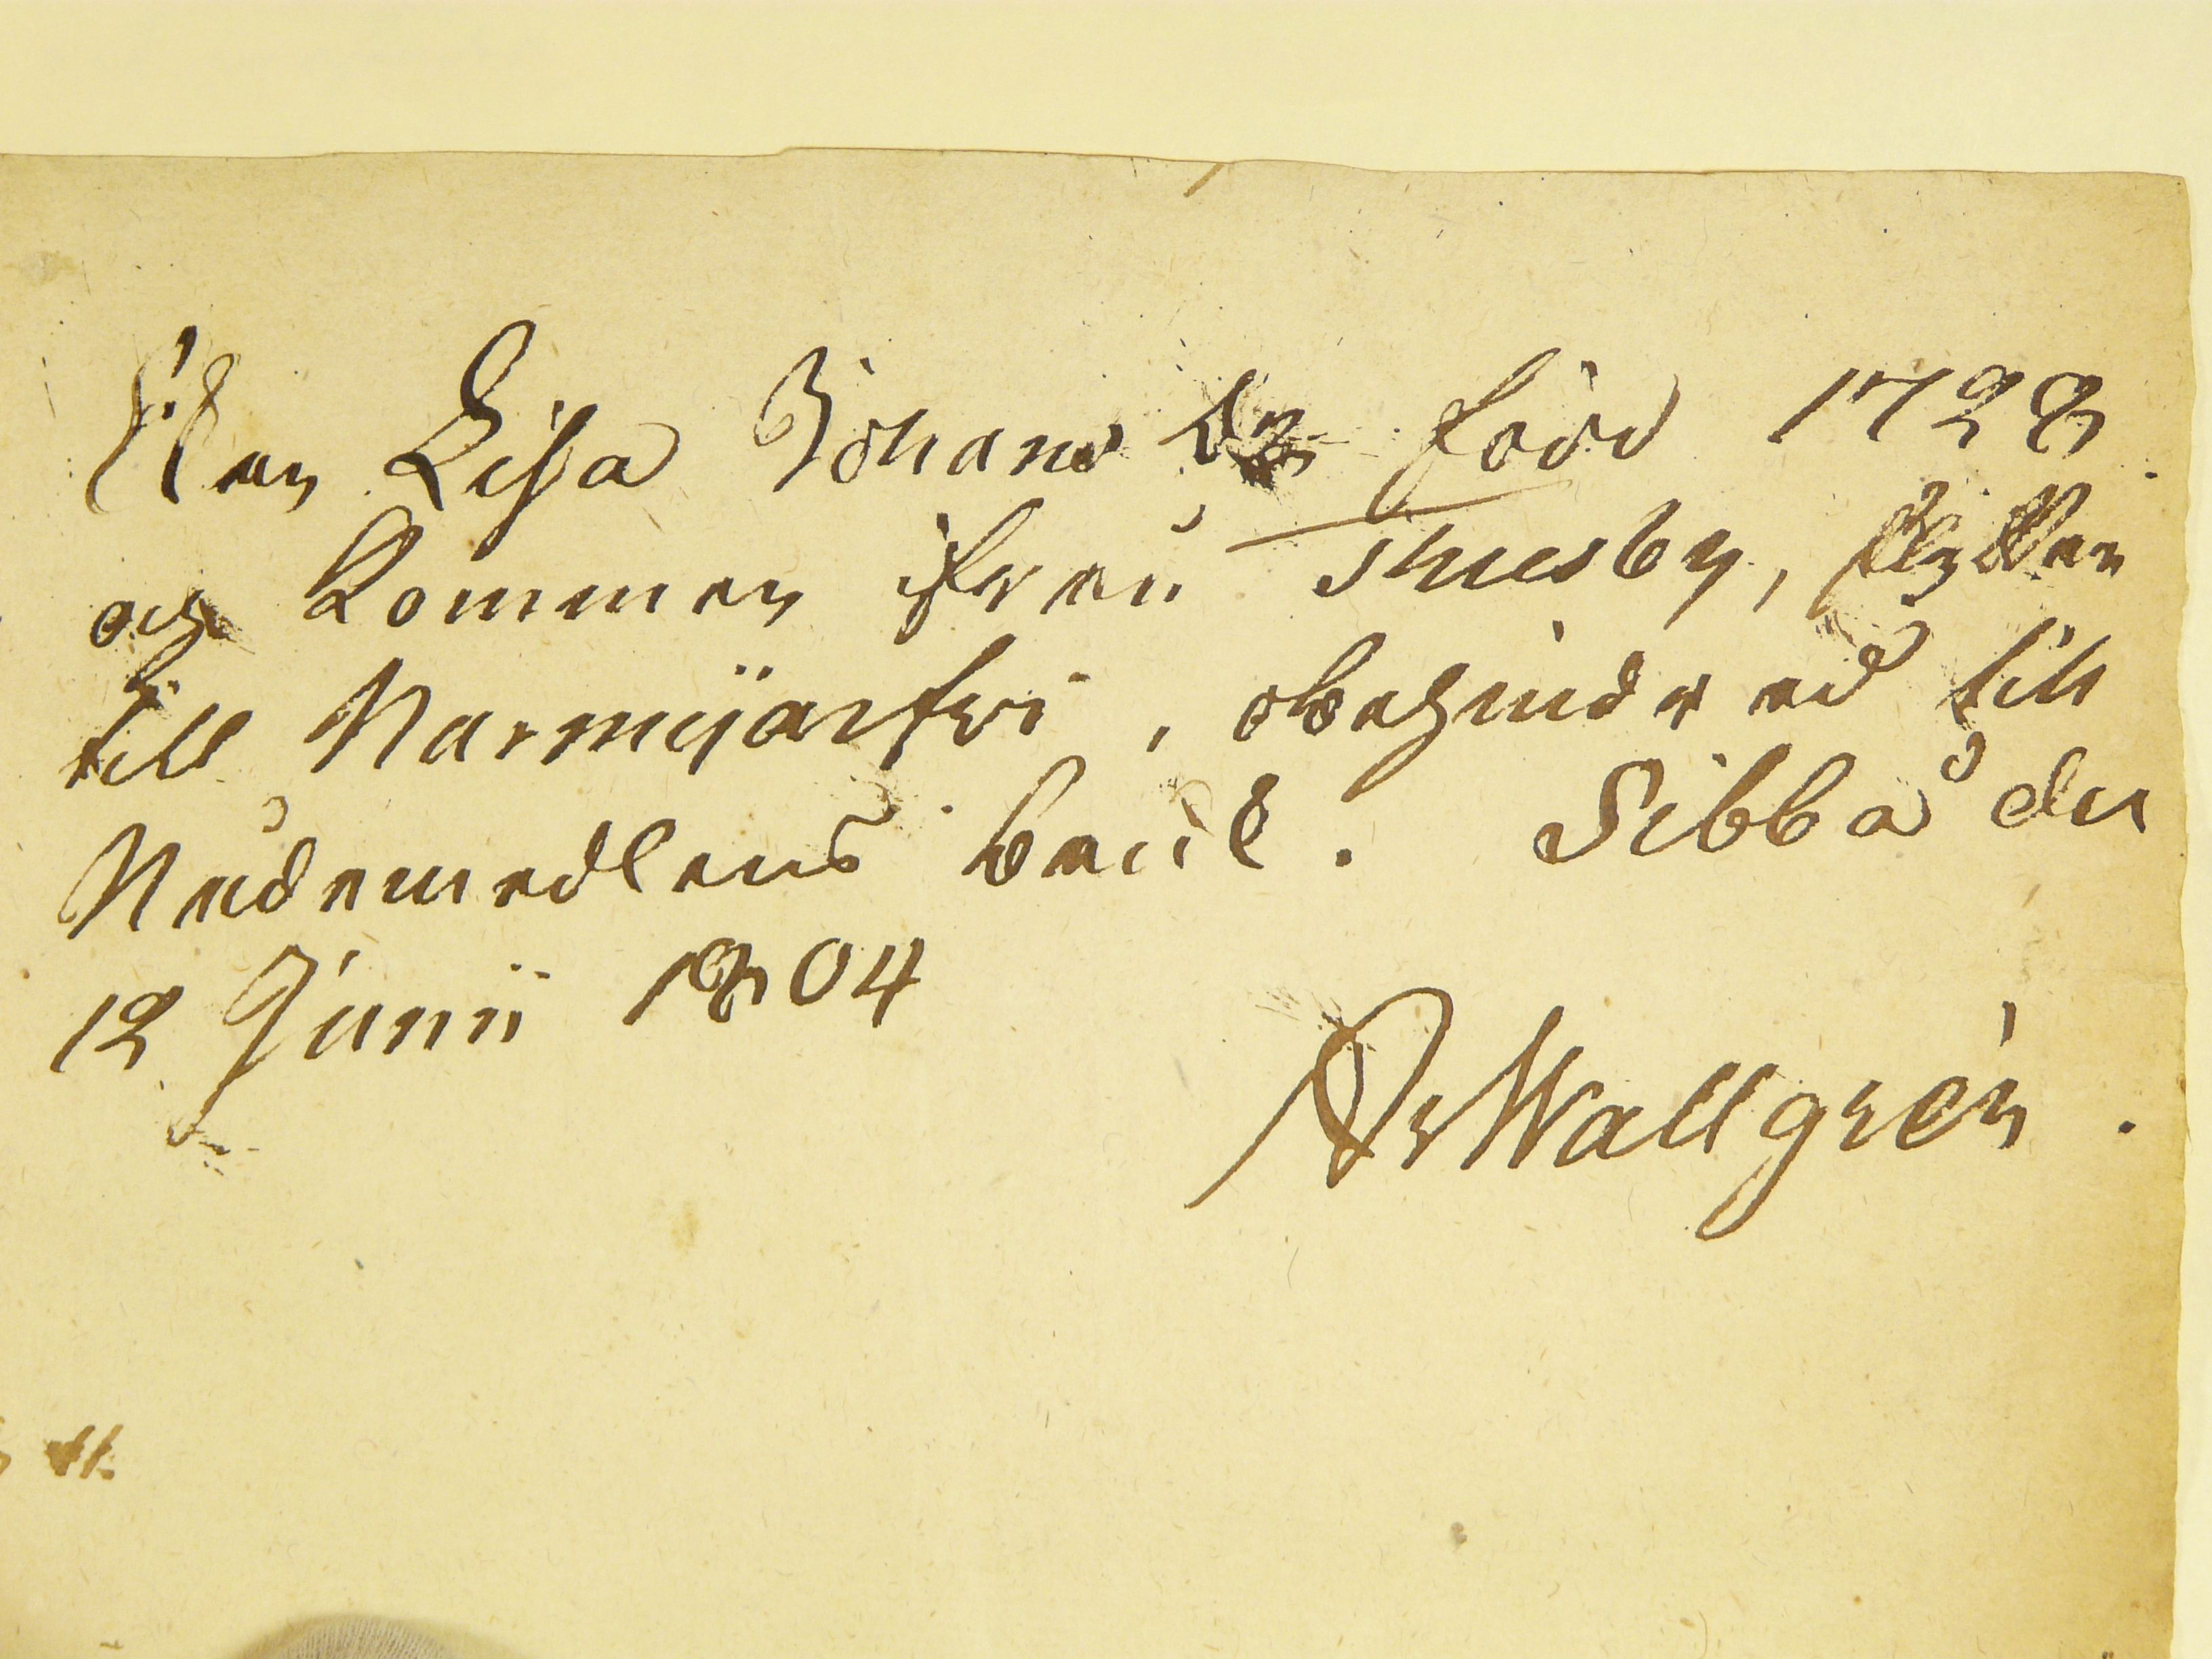 Enkan Lisa Johans dr född 1728
och kommen ifrån Thusby, flyttar
till Nurmijärfvi, obehindrad till
Nådemedlens bruk. Sibbå den
12 Junii 1804
Wallgrén.